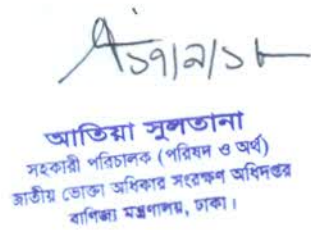 ১৭/২/১৮
আতিয়া সুলতানা
সহকারী পরিচালক (পরিষদ ও অর্থ)
জাতীয় ভোক্তা অধিকার সংরক্ষণ অধিদপ্তর
বাণিজ্য মন্ত্রণালয়, ঢাকা।